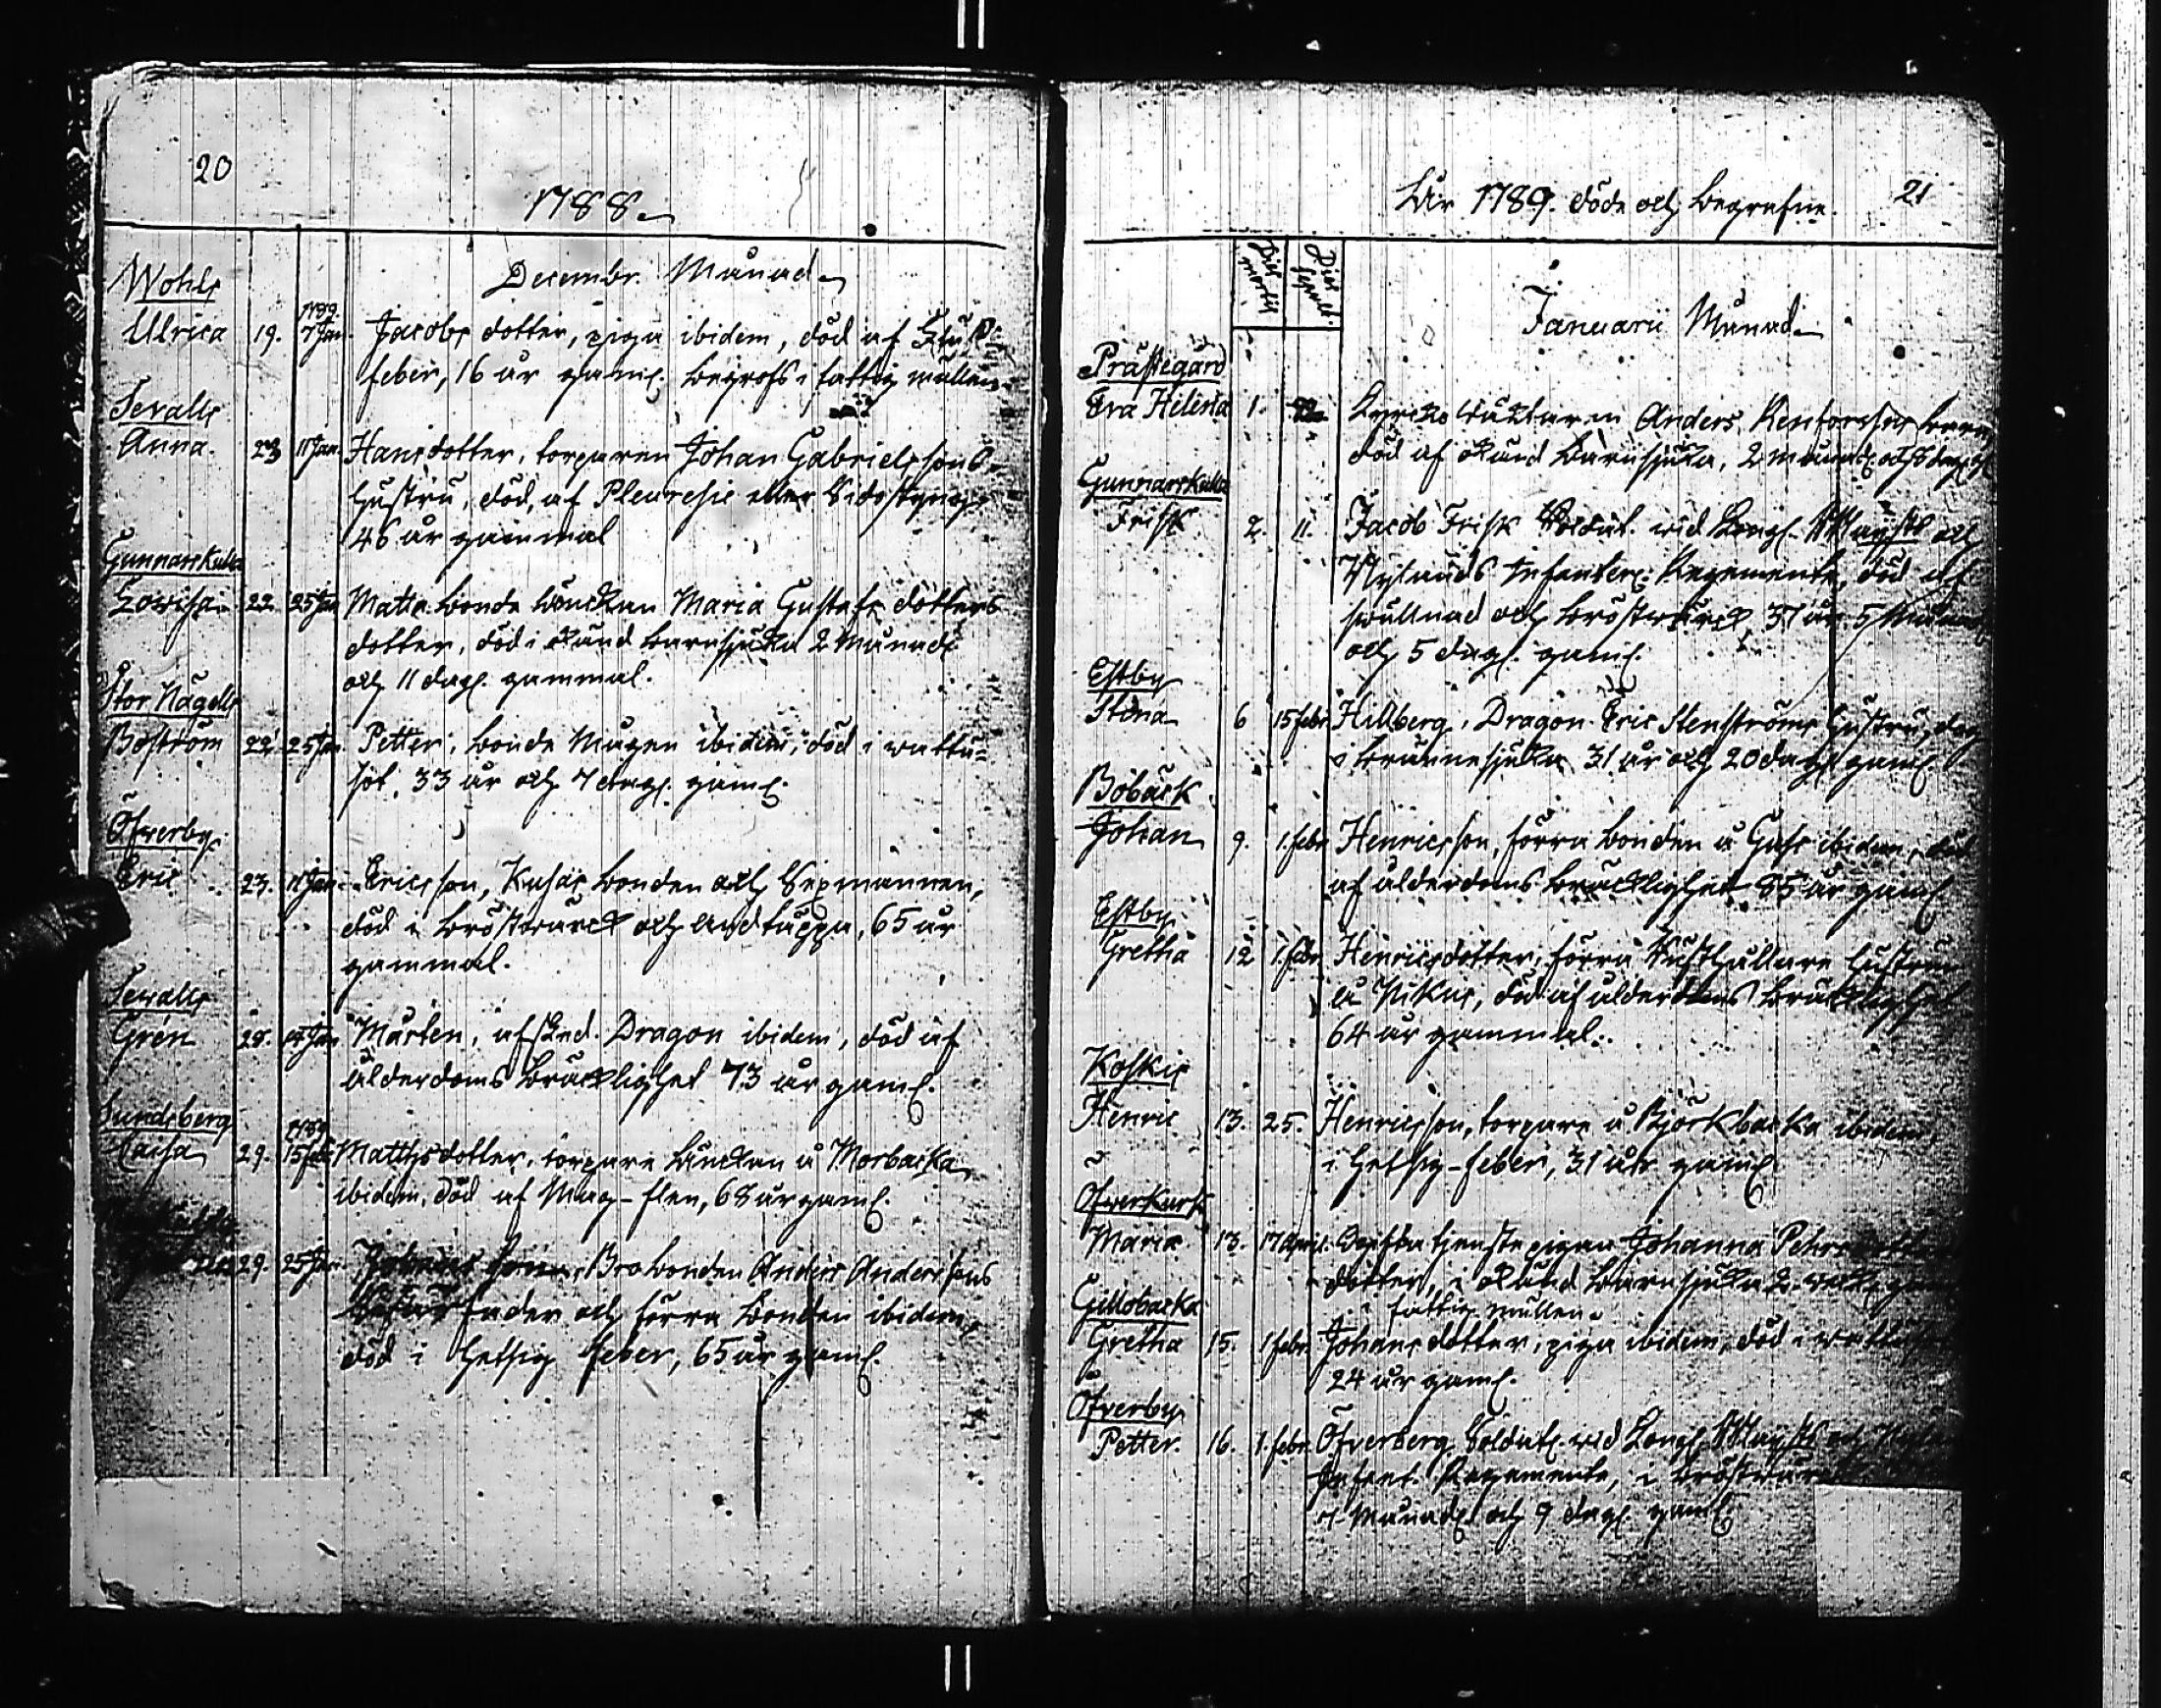 20
1788.
Decembr. Månad.
Wohls
Ulrica 19. 1789. 7 Jan. Jacobs dotter, piga ibidem, död af
feber, 16 år gaml. begrofs i fattig mullen.
Sevalls
Anna. 23 11 Jan. Hansdotter, torparen Johan Gabrielssons
hustru, död, af Pleuresie eller Sidostyng,
46 år gammal
Gunnarskulla
Lovisa 22. 25 Jan Matts bonde Enckan Maria Gustafs dotters
dotter, död i okänd barnsjuka 2 Månad.
och 11 dag. gammal.
Stor Nägells
Boström 22. 25 Jan. Petter, bonde Mågen ibidem, död i wattu-
sot, 33 år och 7 dag. gaml.
Öfverby
Eric 23. 11 Jan. Ericsson, Kusas bonden och Sexmannen,
död i bröstwärck och andtäppa, 65 år
gammal.
Sewalls
Gren 28. Jan Mårten, afsked. Dragon ibidem, död af
ålderdoms bräcklighet 73 år gaml.
Sundsberg
Caisa 29. 1789 15 feb. Mattsdotter, torpare Enckan å Morbacka
ibidem, död af Mag-flen, 68 år gaml.
29. 25 Jan. Bro bonden Anders Anderssons
fader och förra bonden ibidem,
död i hetsig feber, 65 år gaml.
År 1789. döde och begrafne. 21
Dies mortis Dies sepult.
Januarii Månad.
Prästegård
Eva Helena 1. Kyrko wäktaren Anders Renforssos barn
död af okänd barnsjuka, 2 månad. och dag. gl.
Gunnarskulla
Frisk 2. 11. Jacob Frisk Soldat. wid Kongl. Maijst. och
Nylands Infanterie Regemente, död af
swullnad och bröstwärck 37 år 5 Månad
och 5 dag. gaml.
Estby
Stina 6 15 febr. Hillberg, Dragon Eric Stenströms hustru,
i brännesjuka 31 år och 20 dag. gaml.
Boback
Johan 9. 1. febr Henricsson, förra bonden å Gass ibidem, död
af ålderdoms bräcklighet 85 år gaml.
Estby
Gretha 12 1. febr. Henricsdotter, förra Rusthållare hustrun
å Nikus, död af ålderdoms bräcklighet
64 år gammal.
Koskis
Henric 13. 25. Henricsson, torpare å Björkbacka ibidem,
i hetsig-feber, 31 år gaml
Öfverkurk
Maria 13. 17 April. tjenste pigan Johanna Pehrs
dotter, i okänd barnsjuka 2. weck.
i fattig mullen.
Gillobacka
Gretha 15. 1 febr. Johans dotter, piga ibidem, död i wattusot
24 år gaml.
Öfverby
Petter. 16. 1. febr. Öfverberg Soldat. wid Kongl. Maijsts och
Infant. Regemente, i bröstwärck
Månad. och 9 dag. gaml